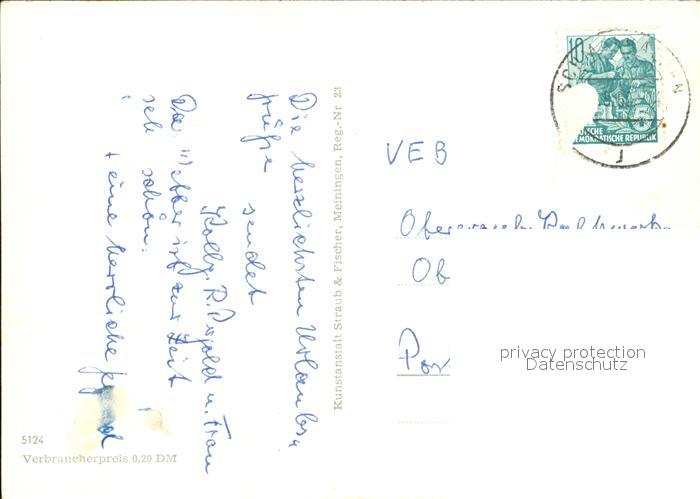 Die herzlichsten Urlaubs-
grüße sendet
Kollg. R. u. Frau
Das Wetter ist zur Zeit
seh schön.
+ eine herrliche
Kunstanstalt Straub & Fischer, Meiningen, Reg.-Nr 23
5124
Verbraucherpreis 0,20 DM
10
5
DEMOKRATISCHE REPUBLIK
VEB
Ob
privacy protection
Datenschutz